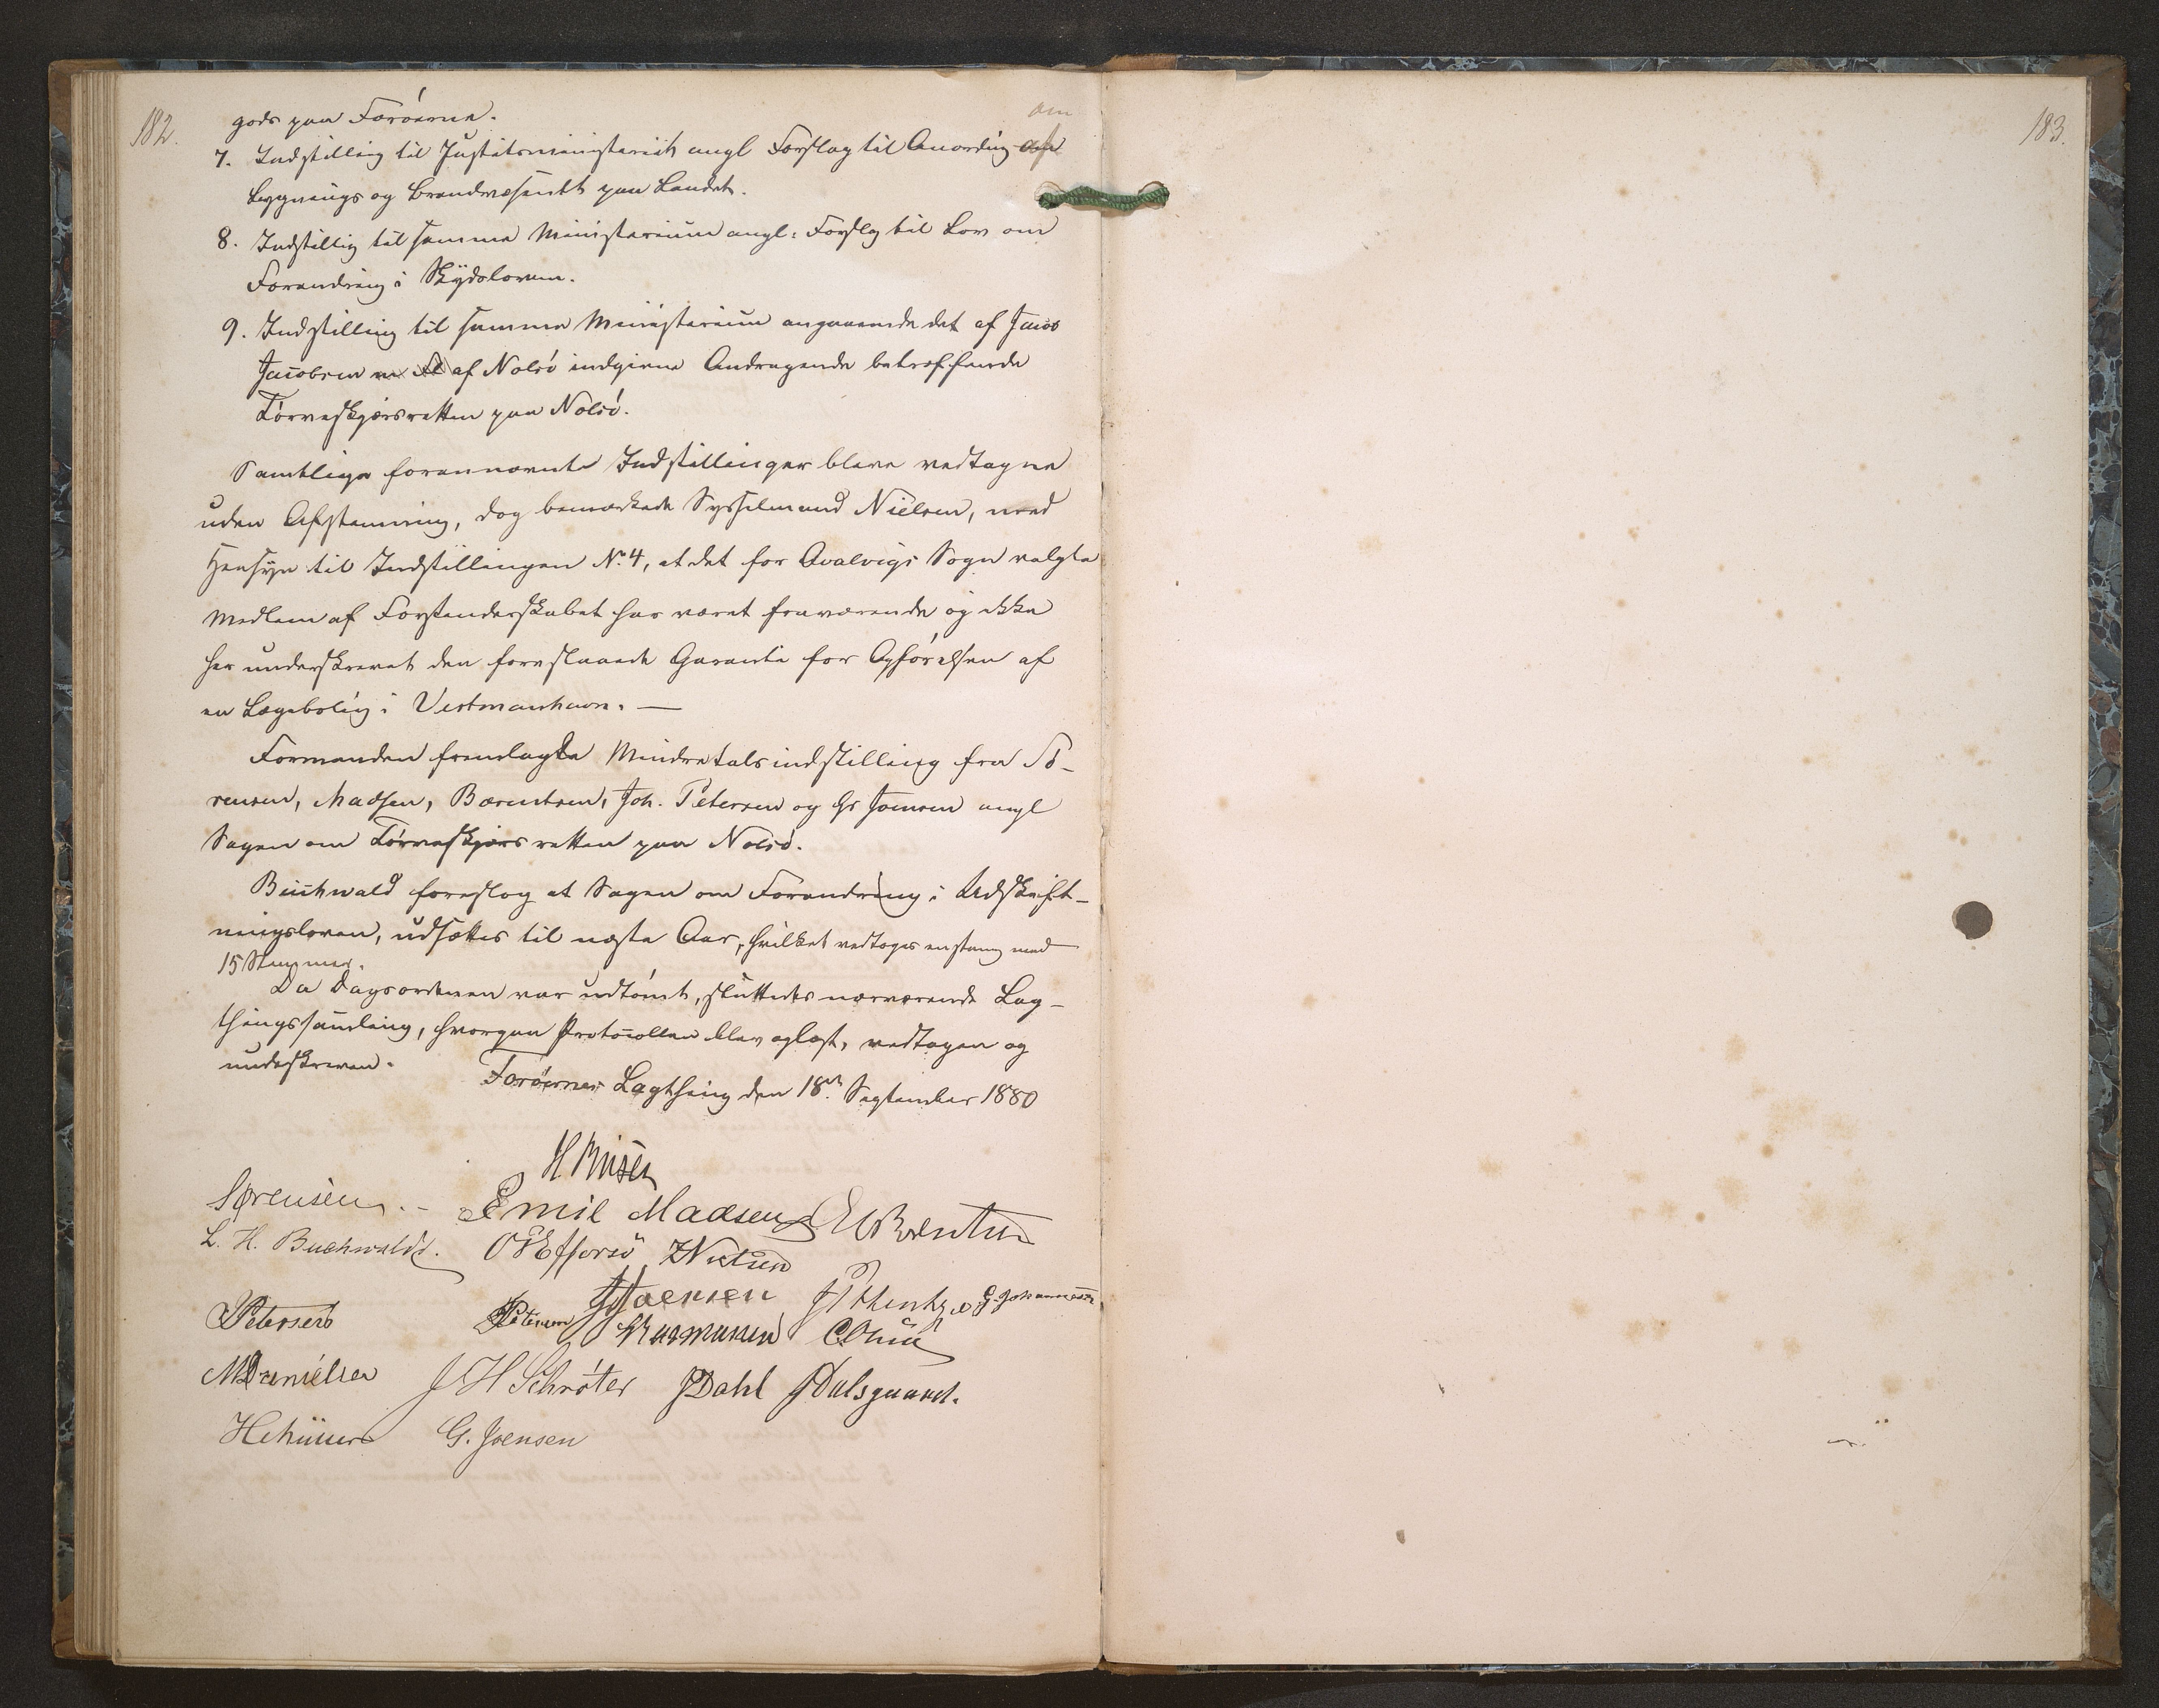 182.
gods paa Færøerne.
7. Indstilling til Justitsministeriet angl Forslag til Anordng om
Bygnings og Brandvæsenet paa Landet.
8. Indstilling til samme Ministerium angl: Forslag til Lov om
Forandring i Skydsloven.
9. Indstilling til samme Ministerium angaaende det af Jacob
Jacobsen af Nolsö indgivne Andragende betræffende
Törveskjærsretten paa Nolsö.
Samtlige forannævnte Indstillinger bleve vedtagne
uden Afstemning, dog bemærkede Sysselmand Nielsen, med
Hensyn til Indstillingen No. 4, at det for Qvalvigs Sogn valgte
Medlem af Forstanderskabet har været fraværende og ikke
har underskrevet den foreslaaede Garanti for Opförelsen af
en Lægebolig i Vestmanhavn. —
Formanden fremlagde Mindretalsindstilling fra Sö-
rensen, Madsen, Bærentsen, Joh. Petersen og Gr Joensen angl
Sagen om Törveskjærsretten paa Nolsö.
Buchwald foreslog at Sagen om Forandring i Udskift-
ningsloven, udsættes til næste Aar, hvilket vedtoges enstemg med
15 Stemmer.
Da Dagsordenen var udtömt, sluttedes nærværende Lag-
thingssamling, hvorpaa Protocollen blev oplæst, vedtagen og
underskreven.
Færöernes Lagthing den 18de September 1880
Sørensen. - Emil Madsen
L. H. Buchwaldt. OEffersö Nielsen
JPetersen Petersen Joensen Johannesen
Rasmussen
MDanielsen JHSchröter JDahl JDalsgaard.
G. Joensen
183.